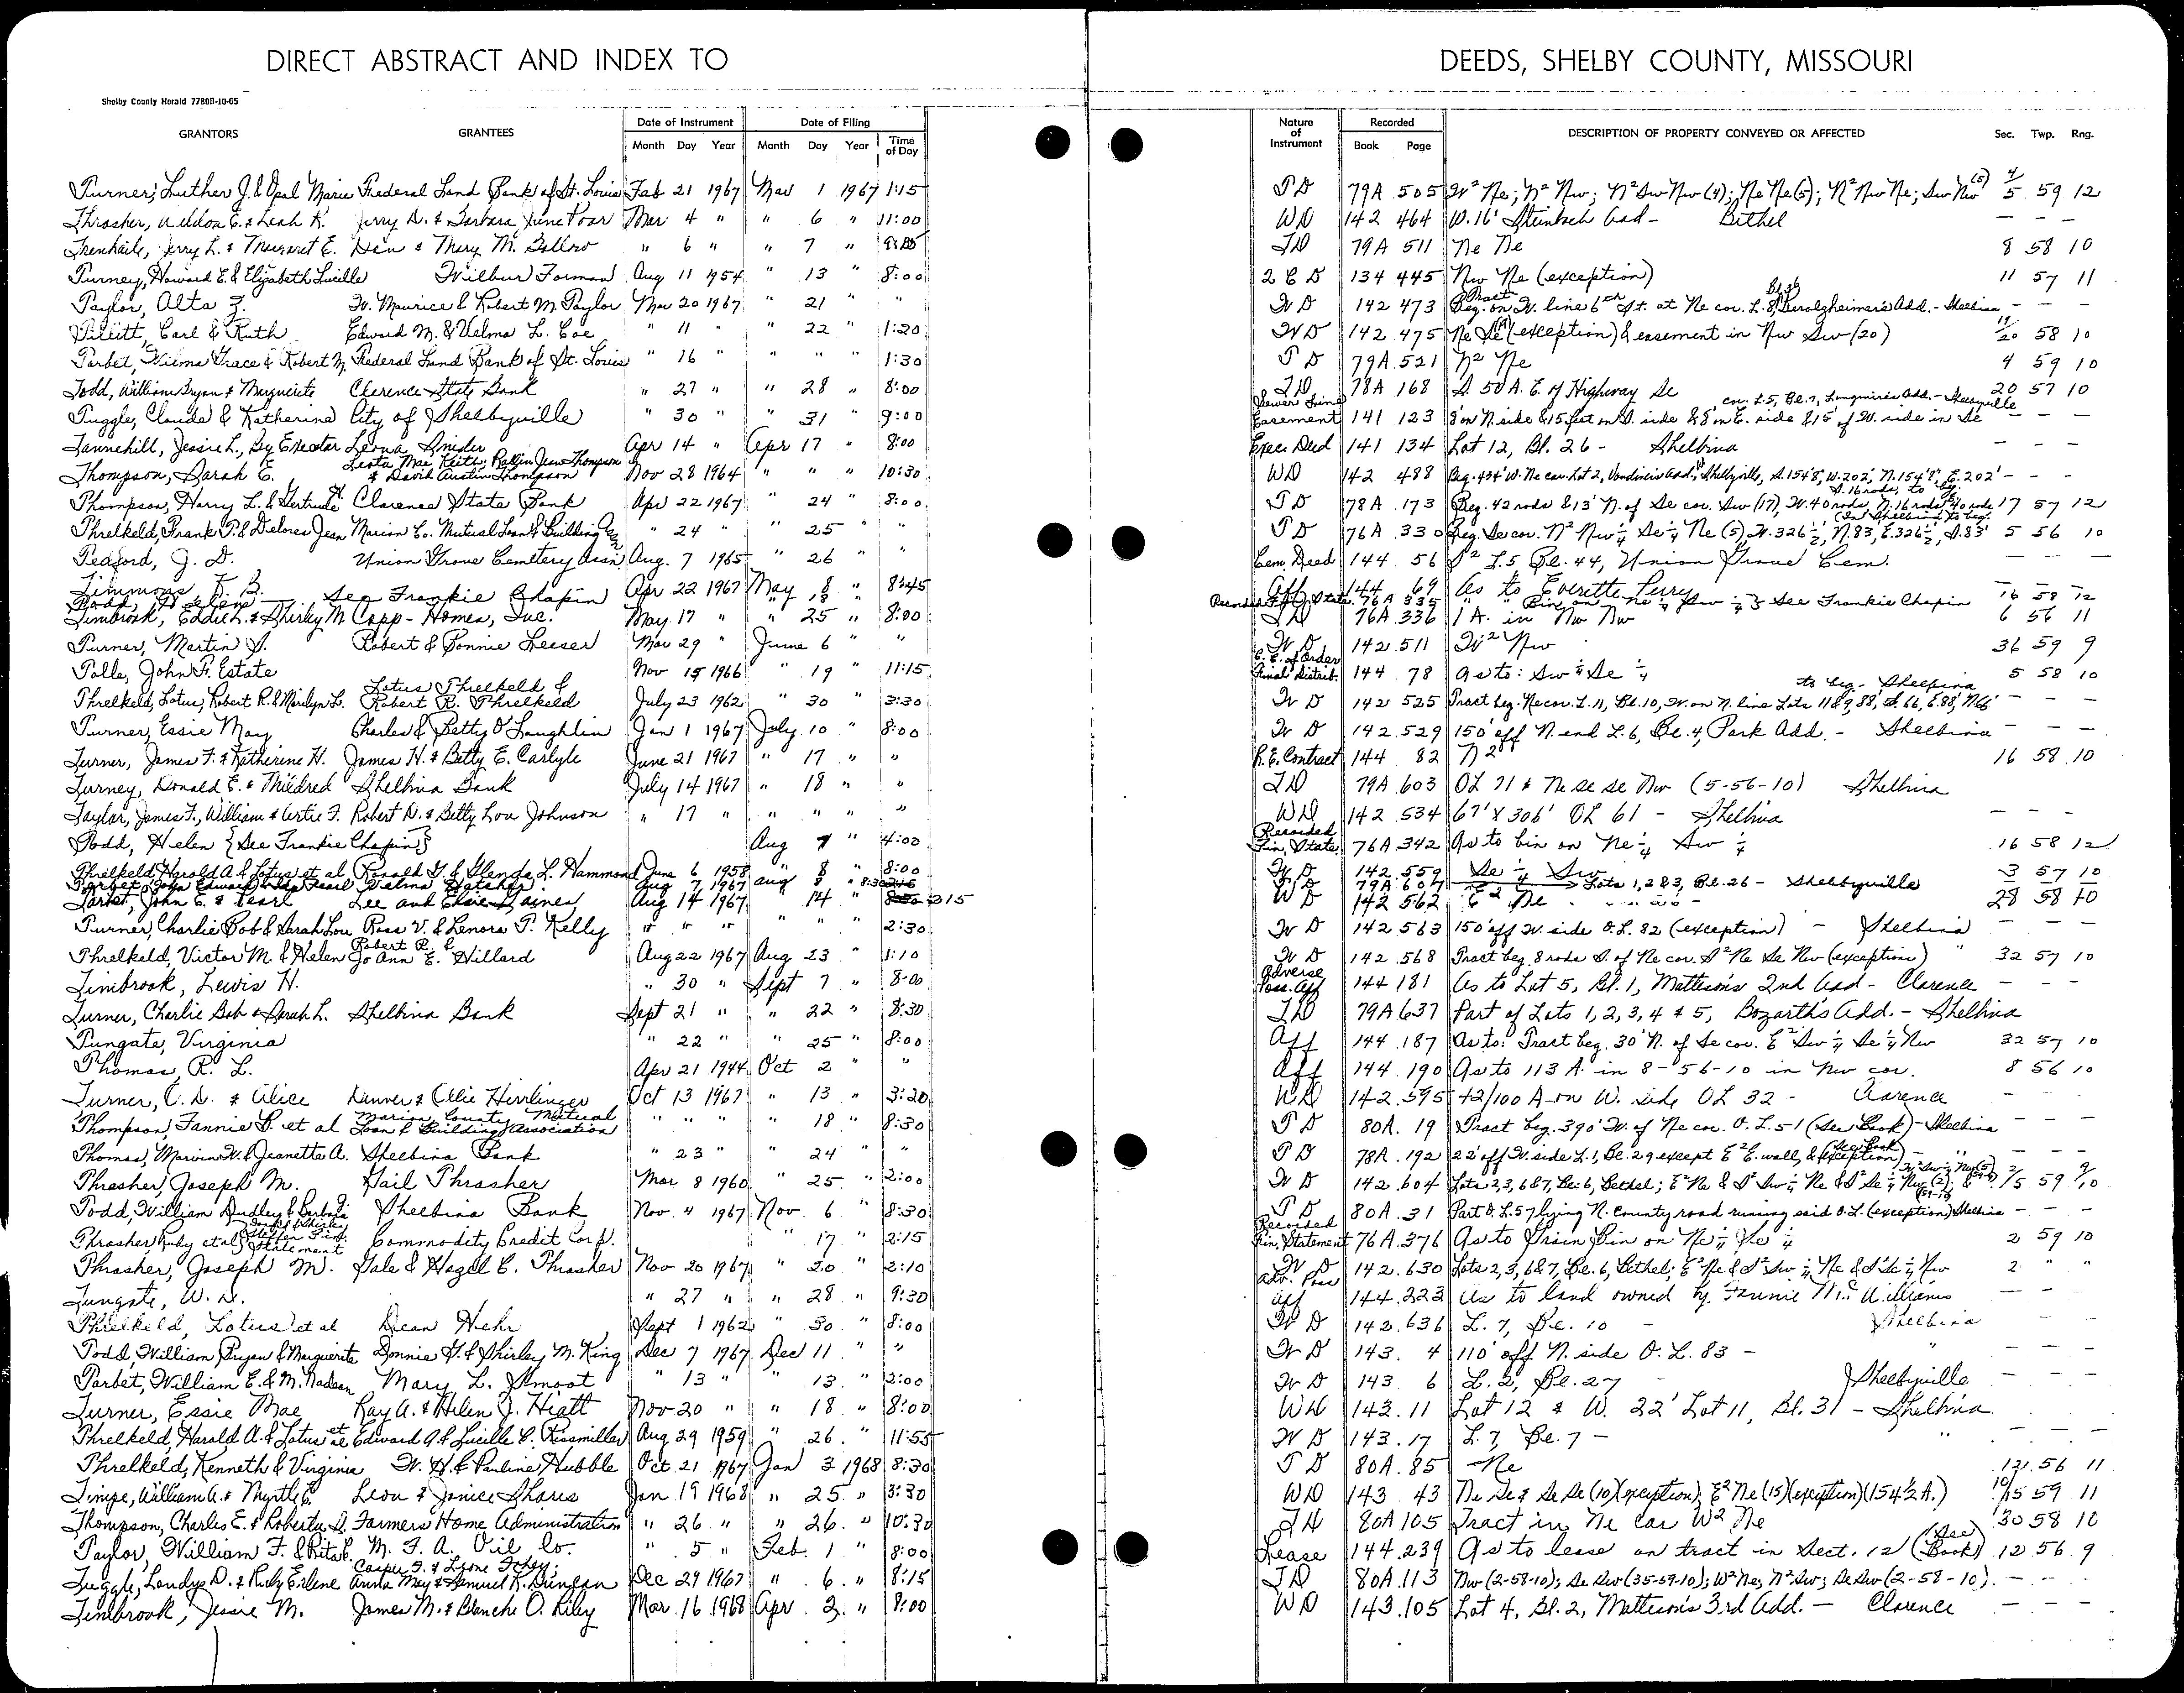 DIRECT ABSTRACT AND INDEX TO DEEDS, SHELBY COUNTY, MISSOURI
Shelby County Herald 7780B-10-65
GRANTORS GRANTEES Date of Instrument Month Day Year Date of Filing Month Day Year Time of Day Nature of Instrument Recorded Book Page DESCRIPTION OF PROPERTY CONVEYED OR AFFECTED Sec. Twp. Rng.
Turner, Luther J. & Opal Marie Federal Land Bank of St. Louis Feb 21 1967 Mar 1 1967 1:15 TD 79A 505 W² Ne; N² Nw; N² Sw Nw (4); Ne Ne (5); N² Nw Ne; Sw Nw (5) 4/5 59 12
Thrasher, Weldon E. & Leah K. Jerry D. & Barbara June Poor Mar 4 " " 6 " 11:00 WD 142 464 W. 16' Steinbach Add - Bethel — — —
Trenhaile, Jerry L. & Margaret E. Dean & Mary M. Ballow " 6 " " 7 " TD 79A 511 Ne Ne 8 58 10
Turney, Howard E. & Elizabeth Lucille Wilbur Forman Aug 11 1954 " 13 " 8:00 Q C D 134 445 Nw Ne (exception) 11 57 11
Taylor, Alta Z. W. Maurice & Robert M. Taylor Mar 20 1967 " 21 " " WD 142 473 Tract Beg. on W. line 6th St. at Ne cor. L. 8, Gerolzheimer's Add. - Shelbina — — —
Tillitt, Carl & Ruth Edward M. & Velma L. Coe " 11 " 22 " 1:20 WD 142 475 Ne Se (exception) & easement in Nw Sw (20) 19/20 58 10
Tarbet, Wilma Grace & Robert M. Federal Land Bank of St. Louis " 16 " " " " 1:30 TD 79A 521 N² Ne 4 59 10
Todd, William Bryan & Marguerite Clarence State Bank " 27 " " 28 " 8:00 TD 78A 168 S. 50 A. E. of Highway Se 20 57 10
Tuggle, Claude & Katherine City of Shelbyville " 30 " " 31 " 9:00 Sewer Line Easement 141 123 8' on N. side & 15 feet on S. side & 8' on E. side & 15' of W. side in Se cor. L5, Bl. 7, Longmire's Add. - Shelbyville — —
Tannehill, Jessie L., By Executor Leona Snider Apr 14 " Apr 17 " 8:00 Exec. Deed 141 134 Lot 12, Bl. 26 - Shelbina — — —
Thompson, Sarah E. Leota Mae Keith, Jean Thompson & David Austin Thompson Nov 28 1964 " " " 10:30 WD 142 488 Beg. 434' W. Ne cor. Lot 2, Vandiver's Add., Shelbyville, S. 154'8", W. 202', N. 154'8", E. 202' — — —
Thompson, Harry L. & Gertrude H. Clarence State Bank Apr 22 1967 " 24 " 8:00 TD 78A 173 Beg. 42 rods & 13' N. of Se cor. Sw (17), W. 40 rods, N. 16 rods, E. 40 rods S. 16 rods, to beg. 17 57 12
Threlkeld, Frank P. & Delores Jean Marion Co. Mutual Loan & Building " 24 " 25 " " TD 76A 330 Beg. Se cor. N² Nw¼ Se¼ Ne (5), W. 326½', N. 83', E. 326½', S. 83' (In Shelbina) to beg. 5 56 10
Tedford, J. D. Union Grove Cemetery Assn Aug. 7 1965 " 26 " " Cem. Deed 144 56 S² L5 Bl. 44, Union Grove Cem. — — —
Timmons, F. B. Apr 22 1967 May 8 " 8:45 Aff 144 69 As to Everette Perry — — —
Todd, Helen See Frankie Chapin " 18 " Recorded Fin. State. 76A 335 " " Bin on Ne¼ Sw¼ See Frankie Chapin 16 58 12
Timbrook, Eddie L. & Shirley M. Capp-Homes, Inc. May 17 " " 25 " 8:00 TD 76A 336 1 A. in Nw Nw 6 56 11
Turner, Martin J. Robert & Bonnie Leeser Mar 29 " June 6 " " WD 142 511 W² Nw 36 59 9
Tolle, John F. Estate Nov 15 1966 " 19 " 11:15 C. C. of Order Final Distrib. 144 78 As to: Sw¼ Se¼ 5 58 10
Threlkeld, Lotus, Robert R. & Marilyn L. Lotus Threlkeld & Robert R. Threlkeld July 23 1962 " 30 " 3:30 WD 142 525 Tract beg. Ne cor. L. 11, Bl. 10, W. on N. line Lots 11 & 9, 88', S. 66, E. 88', N66' to beg. - Shelbina — — —
Turner, Essie May Charles & Betty O'Laughlin Jan 1 1967 July 10 " 8:00 WD 142 529 150' off N. end L. 6, Bl. 4, Park Add. - Shelbina — — —
Turner, James F. & Katherine H. James H. & Betty E. Carlyle June 21 1967 " 17 " " R. E. Contract 144 82 N² 16 58 10
Turney, Donald E. & Mildred Shelbina Bank July 14 1967 " 18 " " TD 79A 603 OL 71 & Ne Se Se Nw (5-56-10) Shelbina
Taylor, James F., William & Artie F. Robert D. & Betty Lou Johnson " 17 " " " " " WD 142 534 67' X 306' OL 61 - Shelbina — —
Todd, Helen {See Frankie Chapin} Aug 7 " 4:00 Recorded Fin. State. 76A 342 As to bin on Ne¼ Sw¼ 16 58 12
Threlkeld, Harold A. & Lotus et al Ronald G. & Glenda L. Hammond June 6 1958 " 8 " 8:00 WD 142 559 Se¼ Sw 3 57 10
Tarbet, John Edward & Ida Pearl Velma Hatcher Aug 7 1967 Aug 8 " 8:30 79A 607 Lots 1, 2 & 3, Bl. 26 - Shelbyville
Tarbet, John E. & Pearl Lee and Elsie Gaines Aug 14 1967 " 14 " 215 WD 142 562 E² Ne 28 58 10
Turner, Charlie Bob & Sarah Lou Ross V. & Lenora T. Kelly " " " " " " 2:30 WD 142 563 150' off W. side O.L. 82 (exception) - Shelbina — — —
Threlkeld, Victor M. & Helen Robert R. & Jo Ann E. Hillard Aug 22 1967 Aug 23 " 1:10 WD 142 568 Tract beg. 8 rods S. of Ne cor. S² Ne Se Nw (exception) " 32 57 10
Timbrook, Lewis H. " 30 " Sept 7 " 8:00 Adverse Poss. Aff 144 181 As to Lot 5, Bl. 1, Mattison's 2nd Add - Clarence — — —
Turner, Charlie Bob & Sarah L. Shelbina Bank Sept 21 " " 22 " 8:30 TD 79A 637 Part of Lots 1, 2, 3, 4 & 5, Bozarth's Add. - Shelbina
Tungate, Virginia " 22 " " 25 " 8:00 Aff 144 187 As to: Tract beg. 30' N. of Se cor. E² Sw¼ Se¼ Nw 32 57 10
Thomas, R. L. Apr 21 1944 Oct 2 " " Aff 144 190 As to 113 A. in 8-56-10 in Nw cor. 8 56 10
Turner, C. D. & Alice Denver & Ollie Hirrlinger Oct 13 1967 " 13 " 3:20 WD 142 595 42/100 A on W. side OL 32 - Clarence — — —
Thompson, Fannie B. et al Marion County Mutual Loan & Building Association " " " " 18 " 8:30 TD 80A 19 Tract beg. 390' W. of Ne cor. O. L. 51 (See Book) - Shelbina — — —
Thomas, Marvin W. & Jeanette A. Shelbina Bank " 23 " " 24 " " TD 78A 192 22' off W. side L. 1, Bl. 29 except E² E. wall, & (exception) (See Book) - " — —
Thrasher, Joseph M. Gail Thrasher Mar 8 1960 " 25 " 2:00 WD 142 604 Lots 2, 3, 6 & 7, Bl. 6, Bethel; E² Ne & S² Sw¼ Ne & S² Se¼ Nw (2); 2/5 59 9/10
Todd, William Dudley & Barbara J. Shelbina Bank Nov. 4 1967 Nov. 6 " 8:30 TD 80A 31 Part O. L. 57 lying N. County road running said O.L. (exception) Shelbina — — —
Thrasher, Ruby et al Commodity Credit Corp. " 17 " 2:15 Recorded Fin. Statement 76A 376 As to Grain Bin on Ne¼ Ne¼ 2 59 10
Thrasher, Joseph M. Gale & Hazel C. Thrasher Nov 20 1967 " 20 " 2:10 WD 142 630 Lots 2, 3, 6 & 7, Bl. 6, Bethel; E² Ne & S² Sw¼ Ne & S² Se¼ Nw 2 " "
Tungate, W. D. " 27 " " 28 " 9:30 Adv. Poss Aff 144 223 As to land owned by Fannie McWilliams — —
Threlkeld, Lotus et al Dean Hehr Sept 1 1962 " 30 " 8:00 WD 142 636 L. 7, Bl. 10 - Shelbina — —
Todd, William Bryan & Marguerite Donnie G. & Shirley M. King Dec 7 1967 Dec 11 " " WD 143 4 110' off N. side O. L. 83 - " — — —
Tarbet, William E. & M. Nadean Mary L. Smoot " 13 " " 13 " 2:00 WD 143 6 L. 2, Bl. 27 - Shelbyville — — —
Turner, Essie Mae Ray A. & Helen J. Hiatt Nov 20 " " 18 " 8:00 WD 143 11 Lot 12 & W. 22' Lot 11, Bl. 31 - Shelbina — — —
Threlkeld, Harald A. & Lotus et al Edward A. & Lucille C. Rissmiller Aug 29 1959 " 26 " 11:55 WD 143 17 L. 7, Bl. 7 - " — — —
Threlkeld, Kenneth & Virginia W. H. & Pauline Hubble Oct. 21 1967 Jan 3 1968 8:30 TD 80A 85 Ne 12 56 11
Timpe, William A. & Myrtle E. Leon & Janice Shares Jan 19 1968 " 25 " 3:30 WD 143 43 Ne Se & Se Se (10) (exception); E² Ne (15) (exception) (154½ A.) 10/15 59 11
Thompson, Charles E. & Roberta D. Farmers Home Administration " 26 " " 26 " 10:30 TD 80A 105 Tract in Ne cor W² Ne 30 58 10
Taylor, William F. & Rita C. M. F. A. Oil Co. " 5 " Feb. 1 " 8:00 Lease 144 239 As to lease on tract in Sect. 12 (See Book) 12 56 9
Tuggle, Landys D. & Ruby Erlene Casper F. & Leone Fohey; Anna May & Samuel K. Duncan Dec 29 1967 " 6 " 8:15 TD 80A 113 Nw (2-58-10); Se Sw (35-59-10); W² Ne; N² Sw; Se Sw (2-58-10). — — —
Timbrook, Jessie M. James M. & Blanche O. Riley Mar. 16 1968 Apr. 2 " 8:00 WD 143 105 Lot 4, Bl. 2, Mattison's 3rd Add. - Clarence — — —